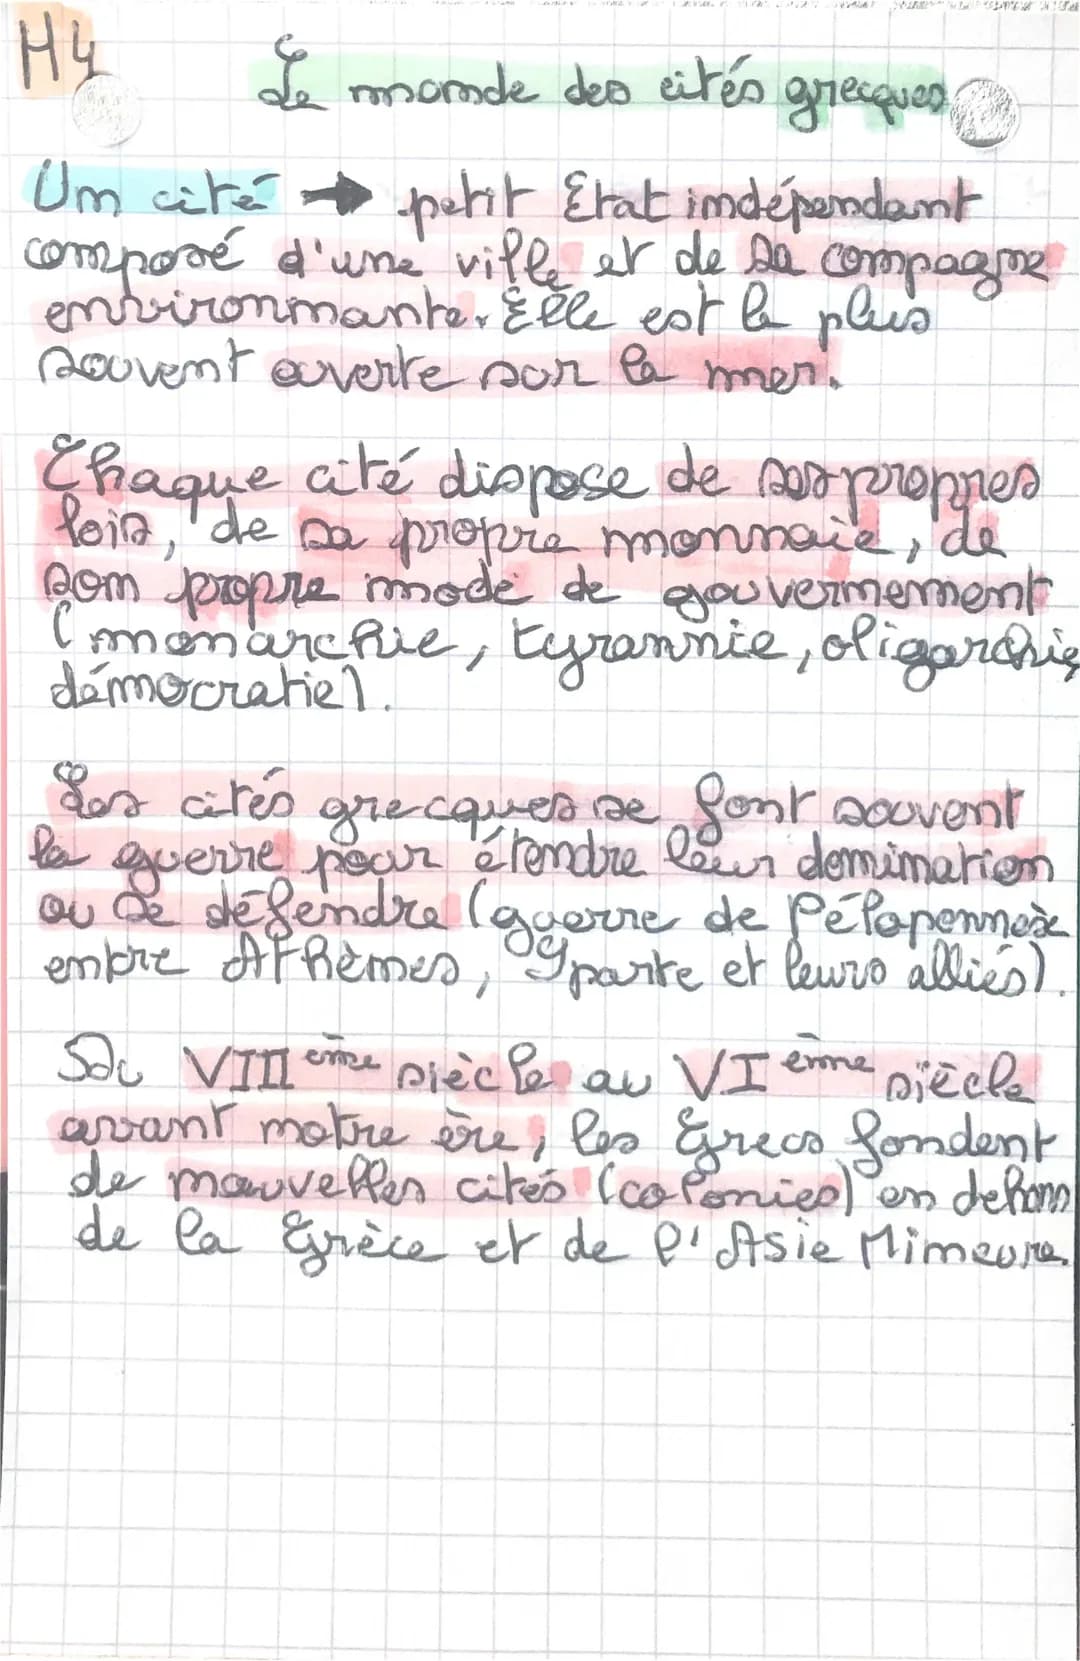 H4
Le monde des cités grecques
Un cité → petit État indépendant
composé d'une ville et de sa compagne
environnante. Elle est le plus
souvent ouverte sur la mer.
Chaque cité dispose de ses propres
lois, de sa propre monnaie, de
son propre mode de gouvernement
(monarchie, tyrannie, oligarchie,
démocratie).
Les cités grecques se font souvent
la guerre pour étendre leur domination
ou se défendre (guerre de Péloponnèse
entre Athènes, Sparte et leurs alliés).
Du VIIIème siècle au VIème siècle
avant notre ère, les Grecs fondent
de nouvelles cités (colonies) en dehors
de la Grèce et de l'Asie Mineure.